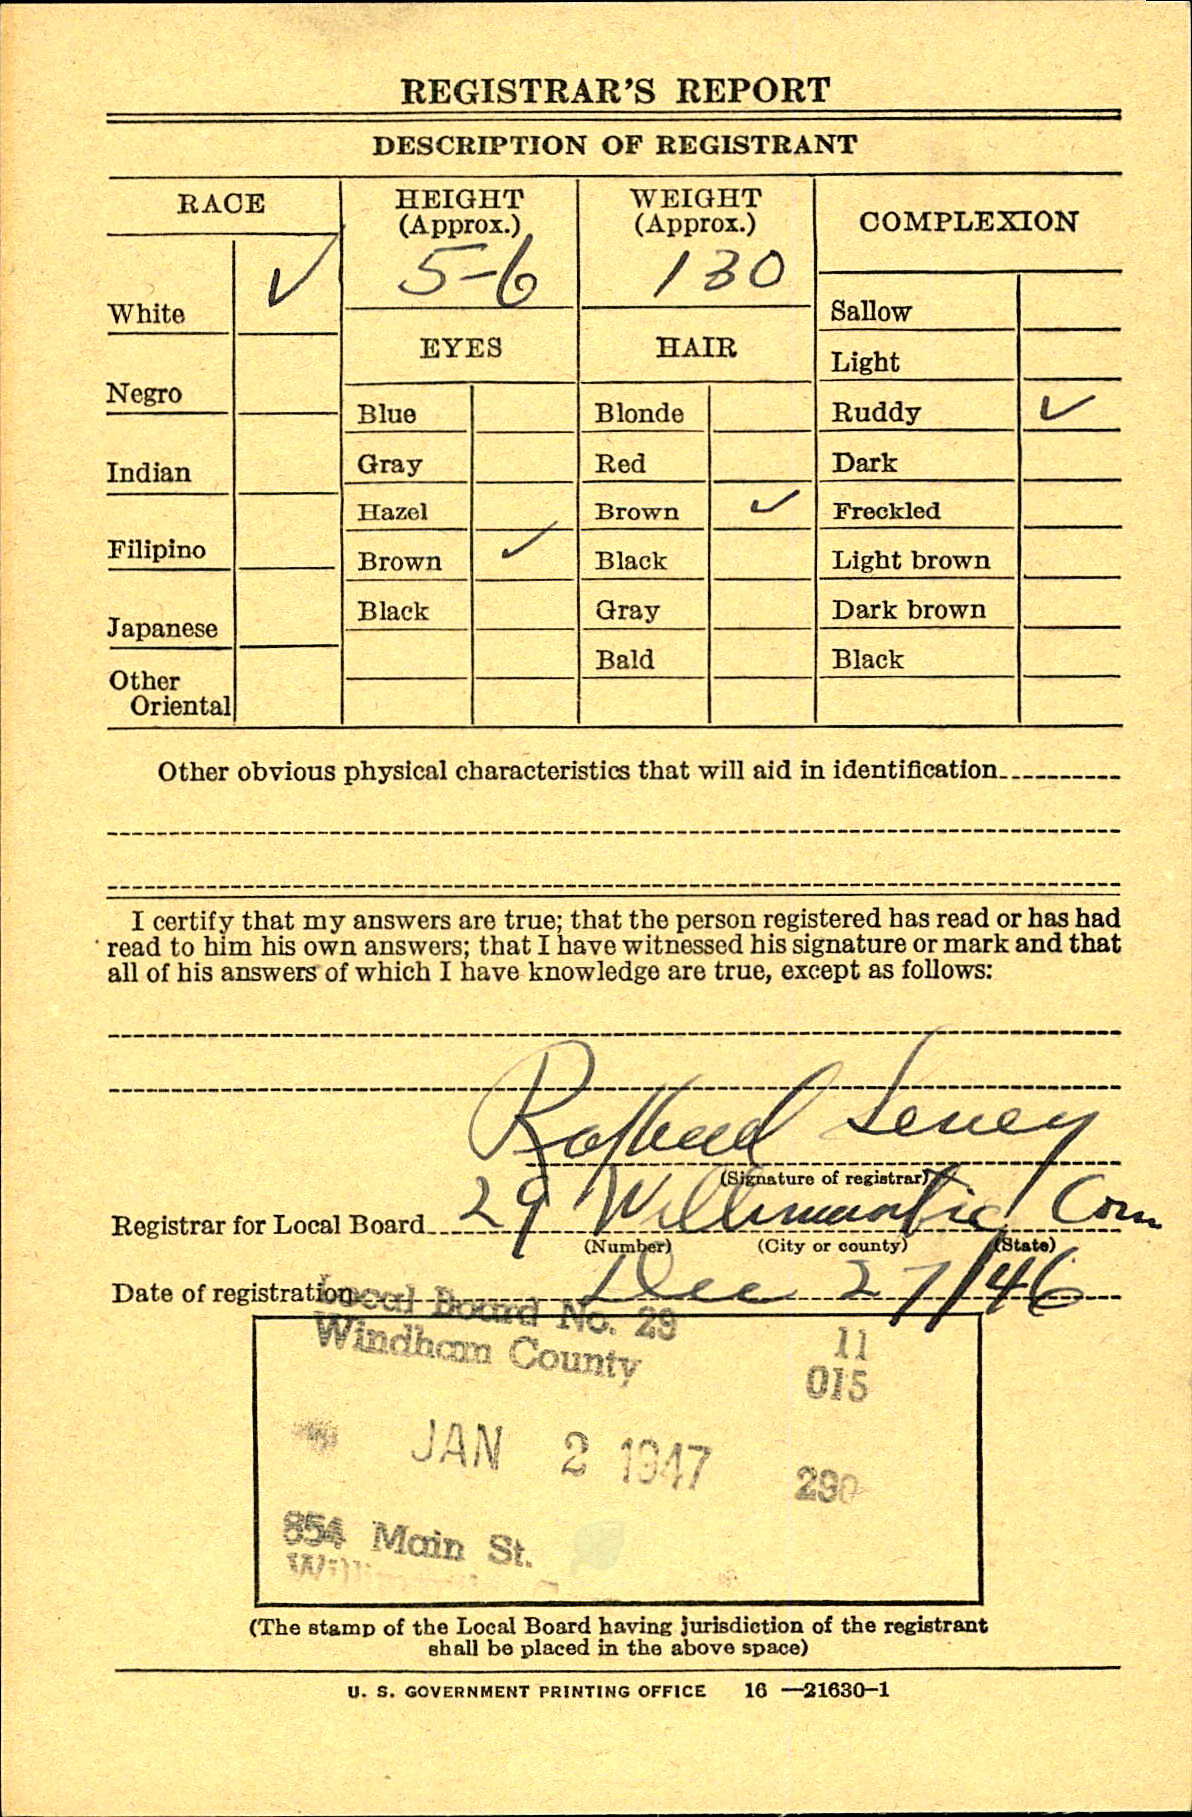 REGISTRAR'S REPORT
DESCRIPTION OF REGISTRANT
RACE
HEIGHT
(Approx.)
5-6
WEIGHT
(Approx.)
130
COMPLEXION
White ✓
Negro
Indian
Filipino
Japanese
Other
Oriental
EYES
Blue
Gray
Hazel
Brown ✓
Black
HAIR
Blonde
Red
Brown ✓
Black
Gray
Bald
Sallow
Light
Ruddy ✓
Dark
Freckled
Light brown
Dark brown
Black
Other obvious physical characteristics that will aid in identification
I certify that my answers are true; that the person registered has read or has had
read to him his own answers; that I have witnessed his signature or mark and that
all of his answers of which I have knowledge are true, except as follows:
(Signature of registrar)
Registrar for Local Board 29 Willimantic Conn
(Number) (City or county) (State)
Date of registration Dec 27/46
Local Board No. 29
Windham County
11
015
JAN 2 1947
290
854 Main St.
(The stamp of the Local Board having jurisdiction of the registrant
shall be placed in the above space)
U. S. GOVERNMENT PRINTING OFFICE 16—21630-1